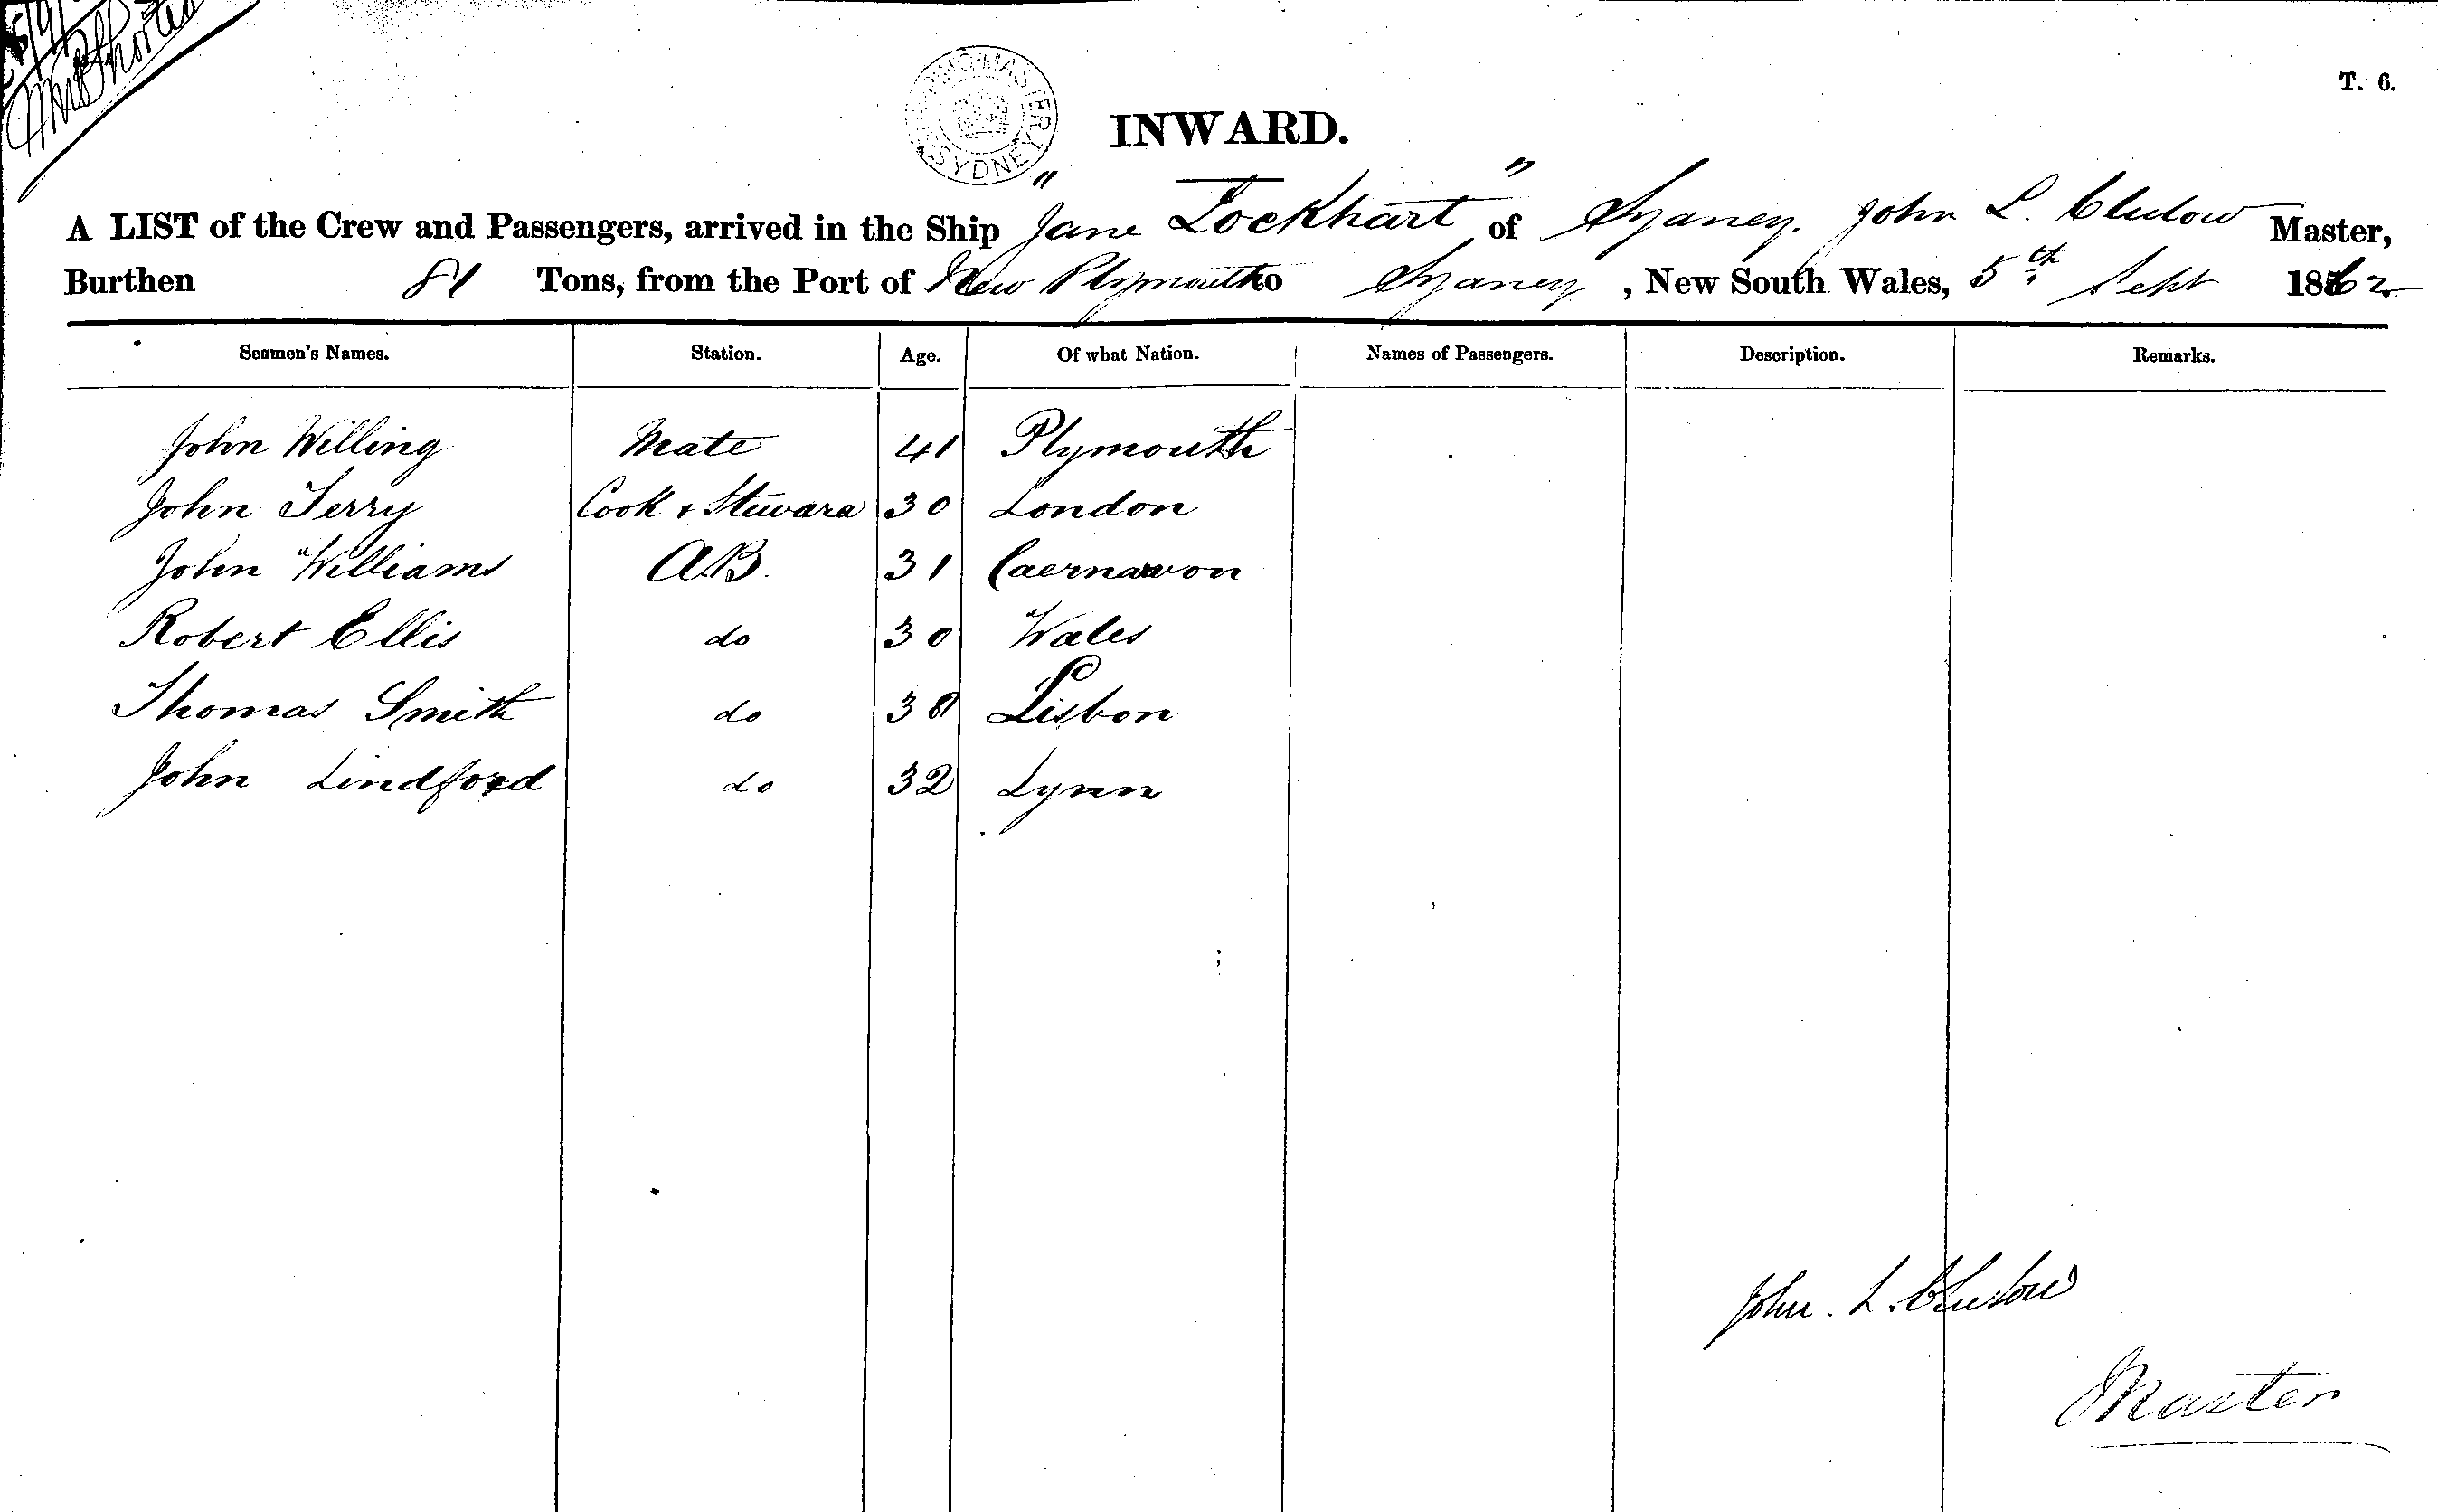 T. 6.
SHIPPING MASTER SYDNEY
INWARD.
A LIST of the Crew and Passengers, arrived in the Ship "Jane Lockhart" of Sydney. John L. Clulow Master,
Burthen 81 Tons, from the Port of New Plymouth to Sydney, New South Wales, 5th Sept 1862
Seamen's Names. Station. Age. Of what Nation. Names of Passengers. Description. Remarks.
John Willing Mate 41 Plymouth
John Terry Cook & Steward 30 London
John Williams A.B. 31 Caernarvon
Robert Ellis do 30 Wales
Thomas Smith do 38 Lisbon
John Lindford do 32 Lynn
John. L. Clulow
Master